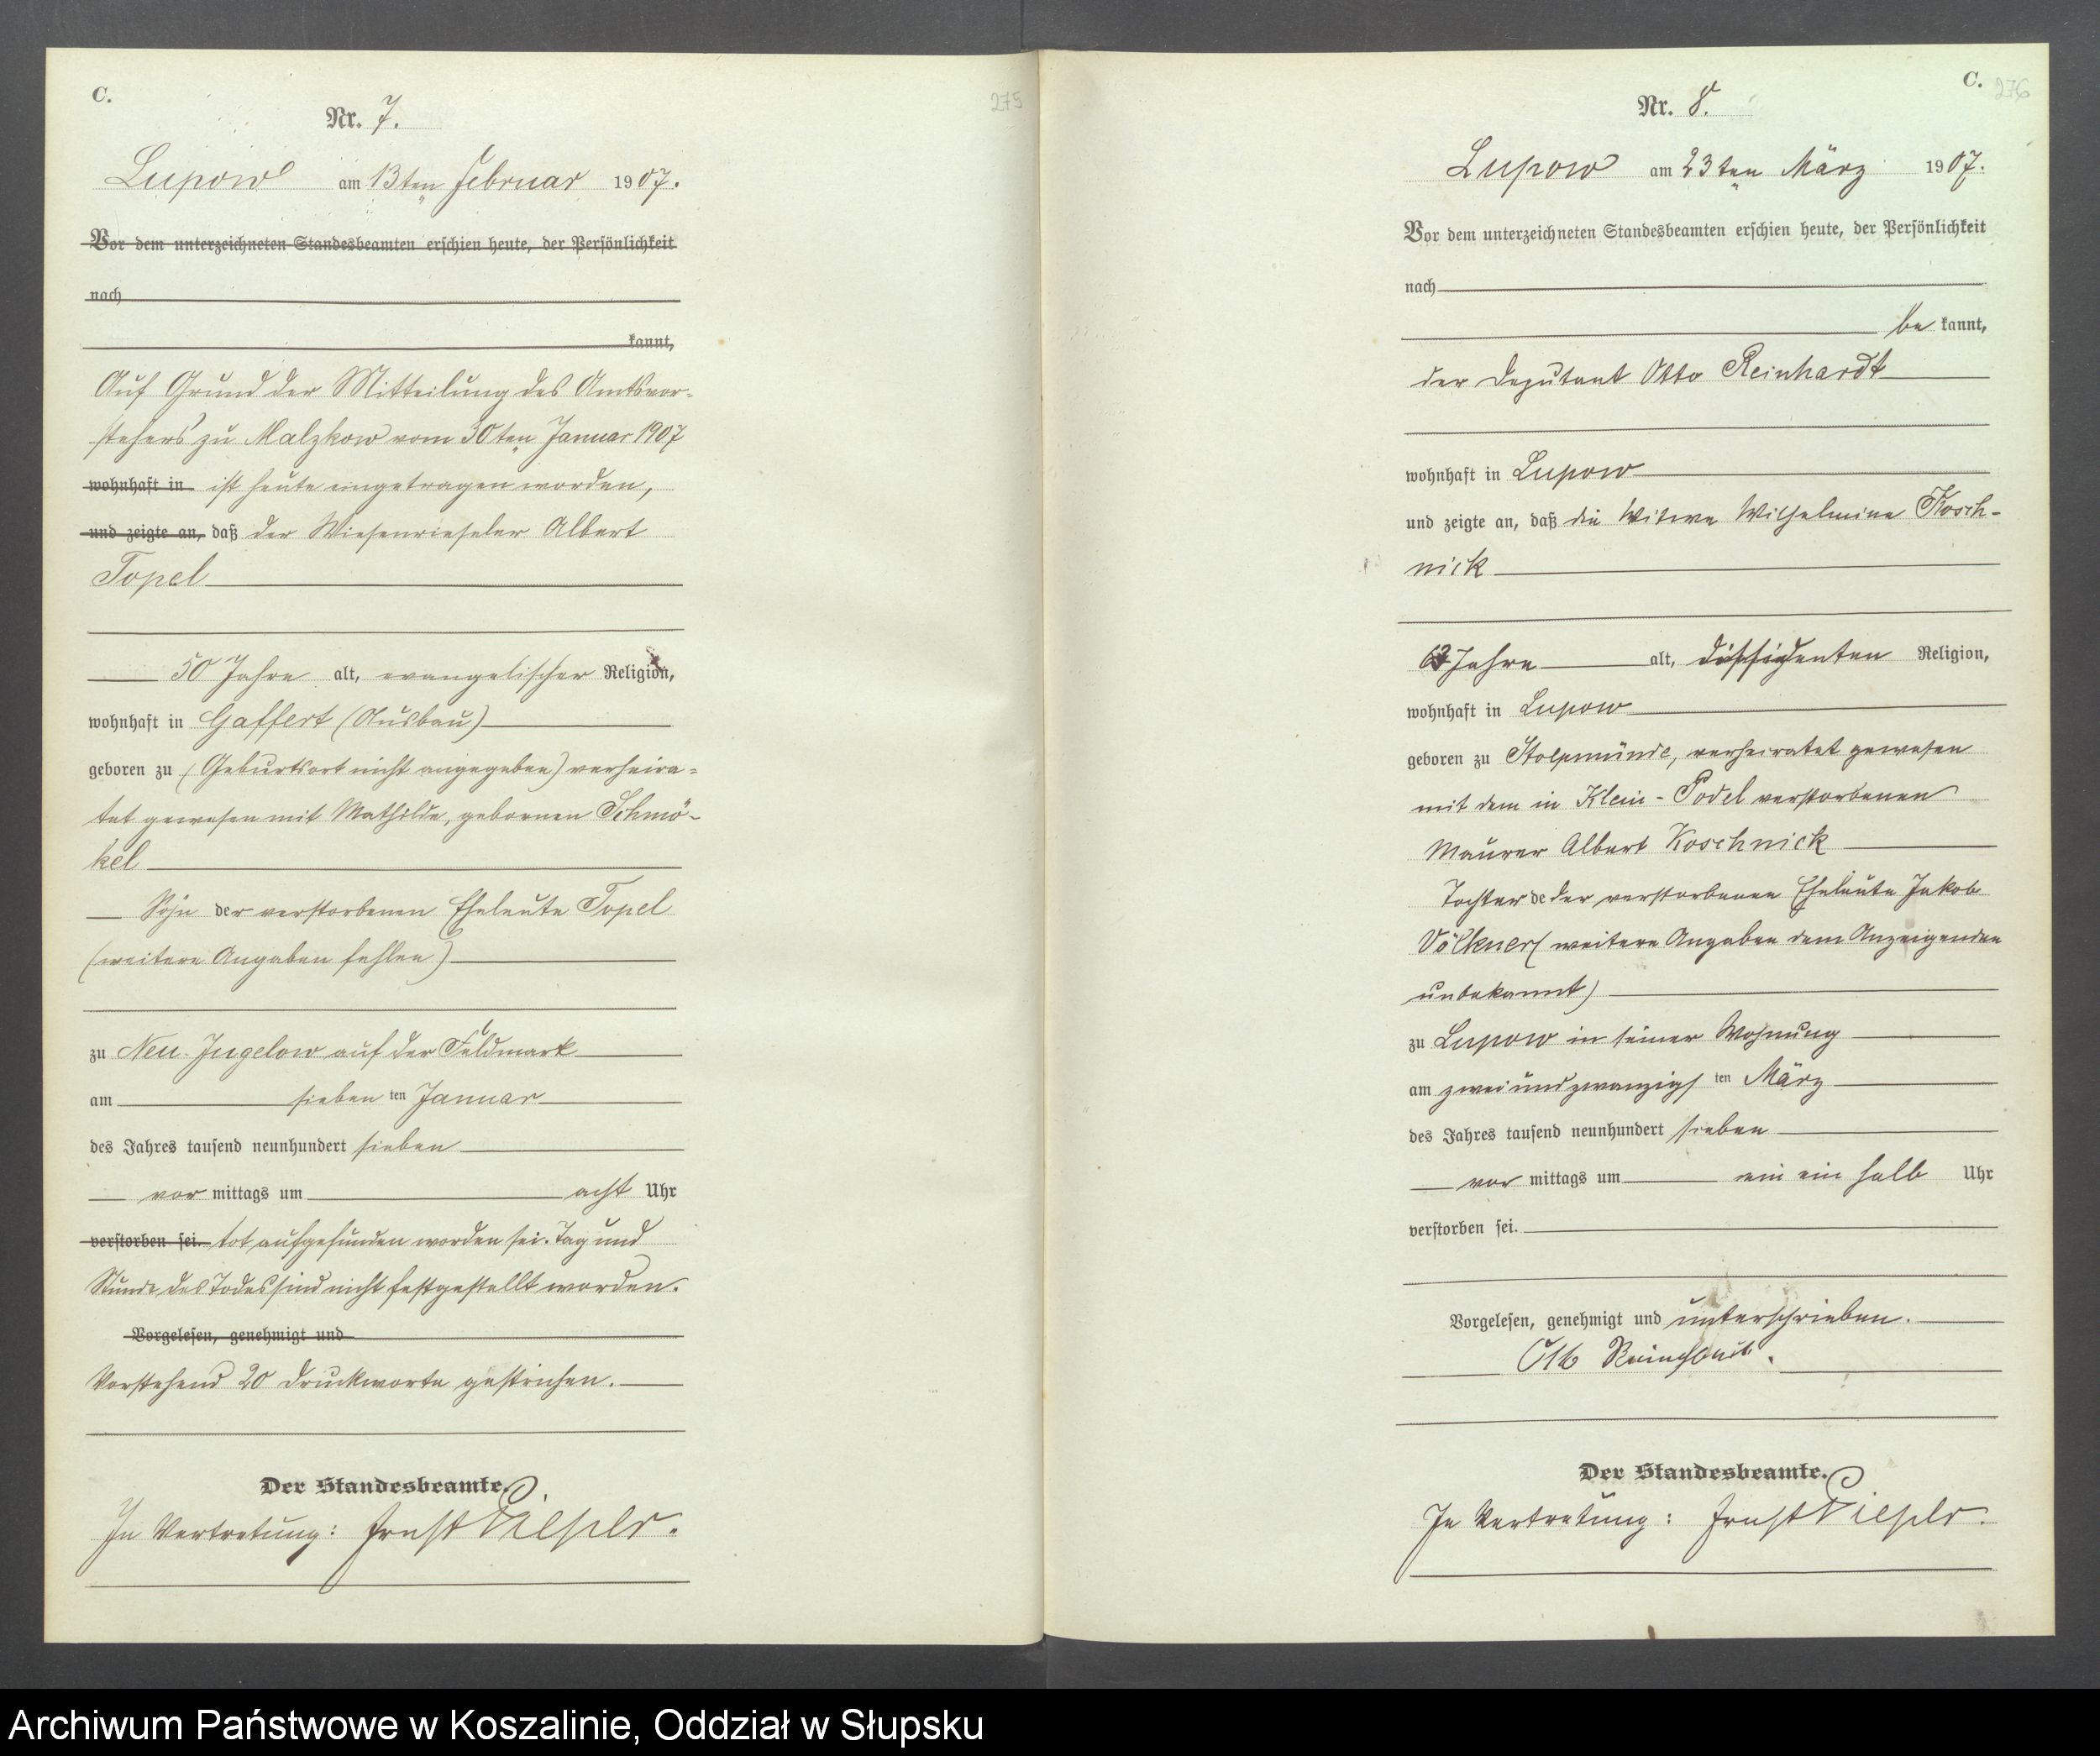 C.
275
Nr. 7.
Lupow am 13ten Februar 1907.
Vor dem unterzeichneten Standesbeamten erschien heute, der Persönlichkeit
nach
kannt,
Auf Grund der Mitteilung des Amtsvor-
stehers zu Malzkow vom 30ten Januar 1907
wohnhaft in ist heute eingetragen worden,
und zeigte an, daß der Wiesenrieseler Albert
Topel
50 Jahre alt, evangelischer Religion,
wohnhaft in Gaffert (Ausbau)
geboren zu (Geburtsort nicht angegeben) verheira-
tet gewesen mit Mathilde, gebornen Schmö-
kel
Sohn der verstorbenen Eheleute Topel
(weitere Angaben fehlen)
zu Neu-Jugelow auf der Feldmark
am sieben ten Januar
des Jahres tausend neunhundert sieben
vor mittags um acht Uhr
verstorben sei. tot aufgefunden worden sei. Tag und
Stunde des Todes sind nicht festgestellt worden.
Vorgelesen, genehmigt und
Vorstehend 20 Druckworte gestrichen.
Der Standesbeamte.
In Vertretung: Ernst
C.
276
Nr. 8.
Lupow am 23ten März 1907.
Vor dem unterzeichneten Standesbeamten erschien heute, der Persönlichkeit
nach
be kannt,
der Deputant Otto Reinhardt
wohnhaft in Lupow
und zeigte an, daß die Witwe Wilhelmine Kosch-
nick
Jahre alt, dissidenten Religion,
wohnhaft in Lupow
geboren zu Stolpmünde, verheiratet gewesen
mit dem in Klein-Podel verstorbenen
Maurer Albert Koschnick
Tochter de der verstorbenen Eheleute Jakob
Völkner (weitere Angaben dem Anzeigenden
unbekannt)
zu Lupow in seiner Wohnung
am zweiundzwanzigs ten März
des Jahres tausend neunhundert sieben
vor mittags um ein ein halb Uhr
verstorben sei.
Vorgelesen, genehmigt und unterschrieben.
Otto Reinhardt.
Der Standesbeamte.
In Vertretung: Ernst
Archiwum Państwowe w Koszalinie, Oddział w Słupsku